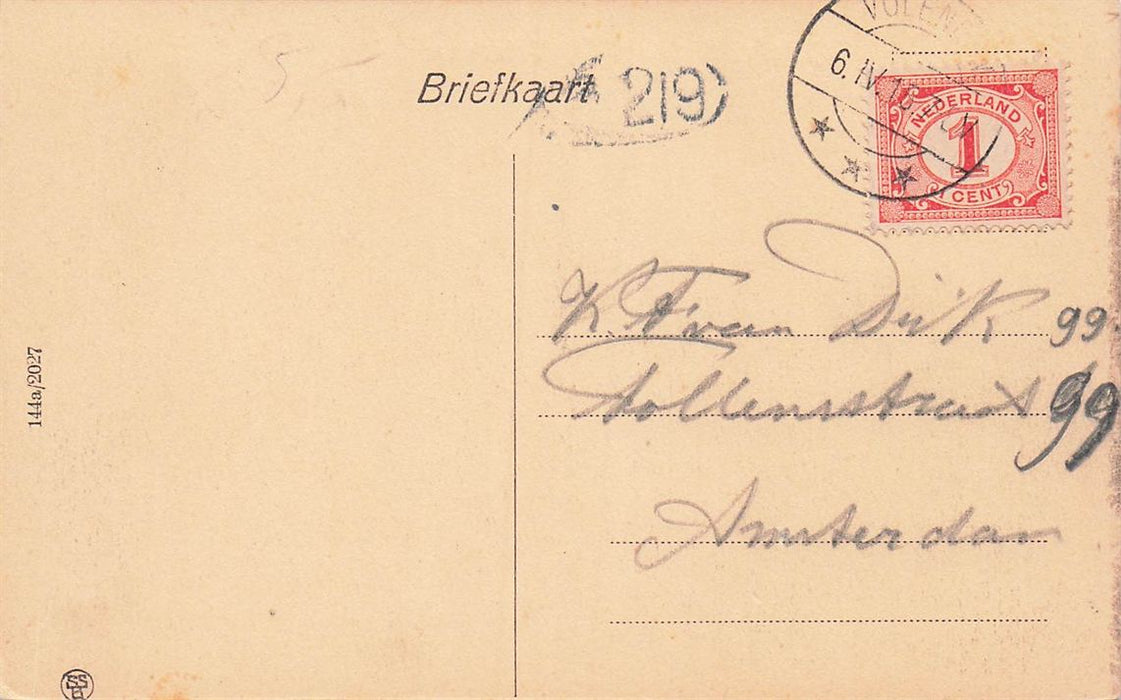 VOLEN
6.IV.16
Briefkaart
219
NEDERLAND
1
1 CENT
K. F. van Dijk 99
Tollensstraat 99
Amsterdam
144a/2027
5,-